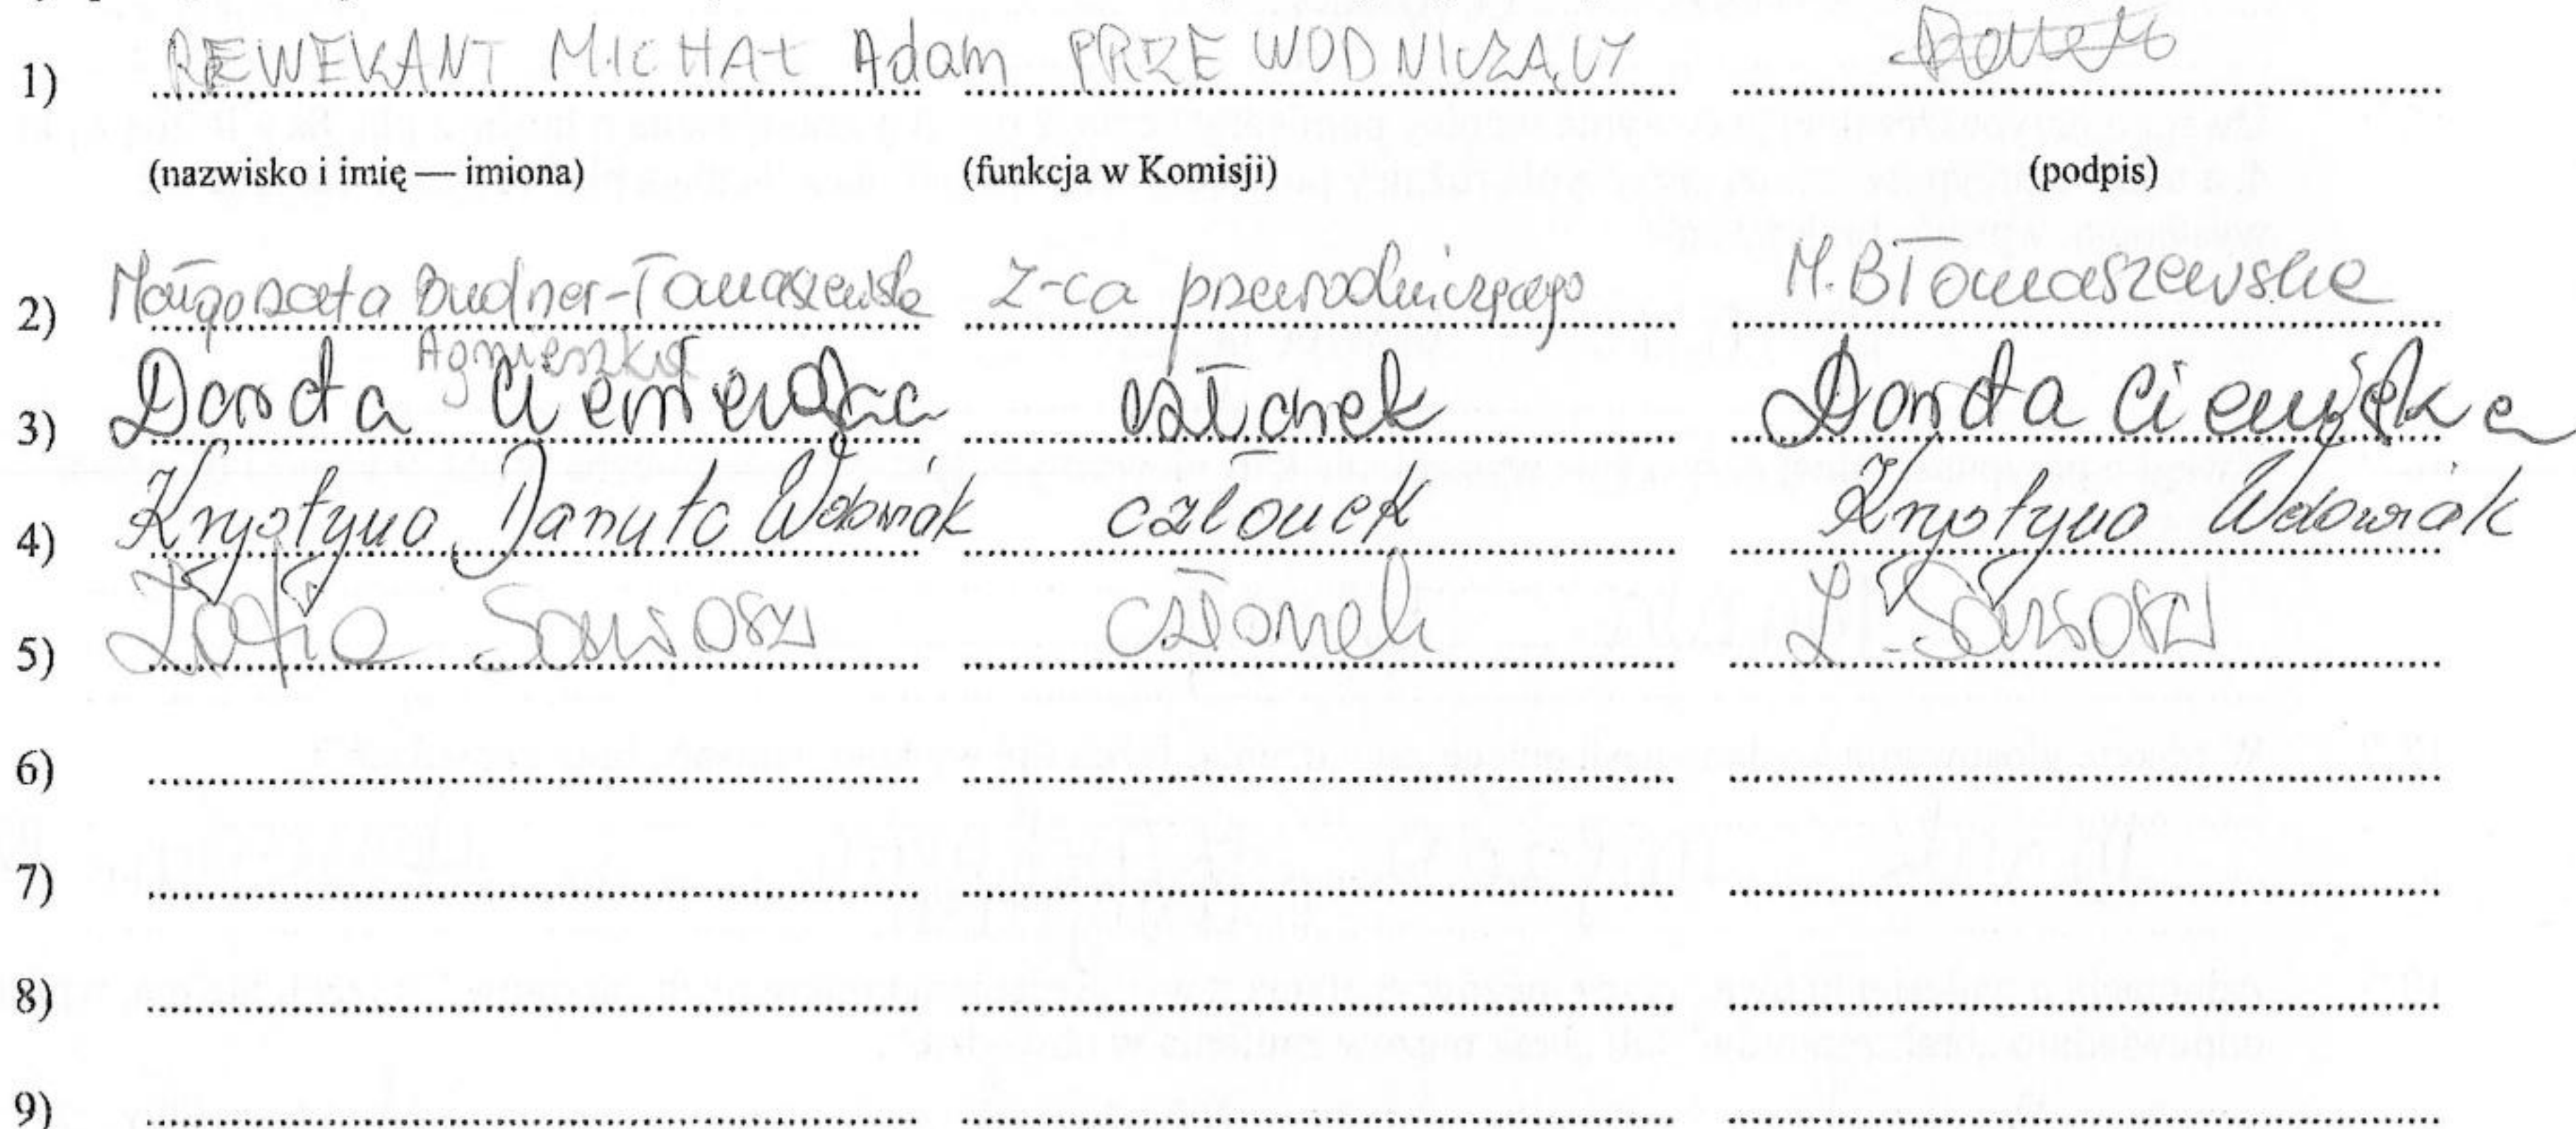 1) REWEKANT MICHAŁ Adam PRZEWODNICZĄCY
(nazwisko i imię — imiona) (funkcja w Komisji) (podpis)
2) Małgorzata Budner-Tomaszewska z-ca przewodniczącego M.BTomaszewska
Agnieszka
3) Dorota członek Dorota
4) Krystyna Danuta Wdowiak członek Krystyna Wdowiak
5) Zofia Sawosz członek Z. Sawosz
6)
7)
8)
9)